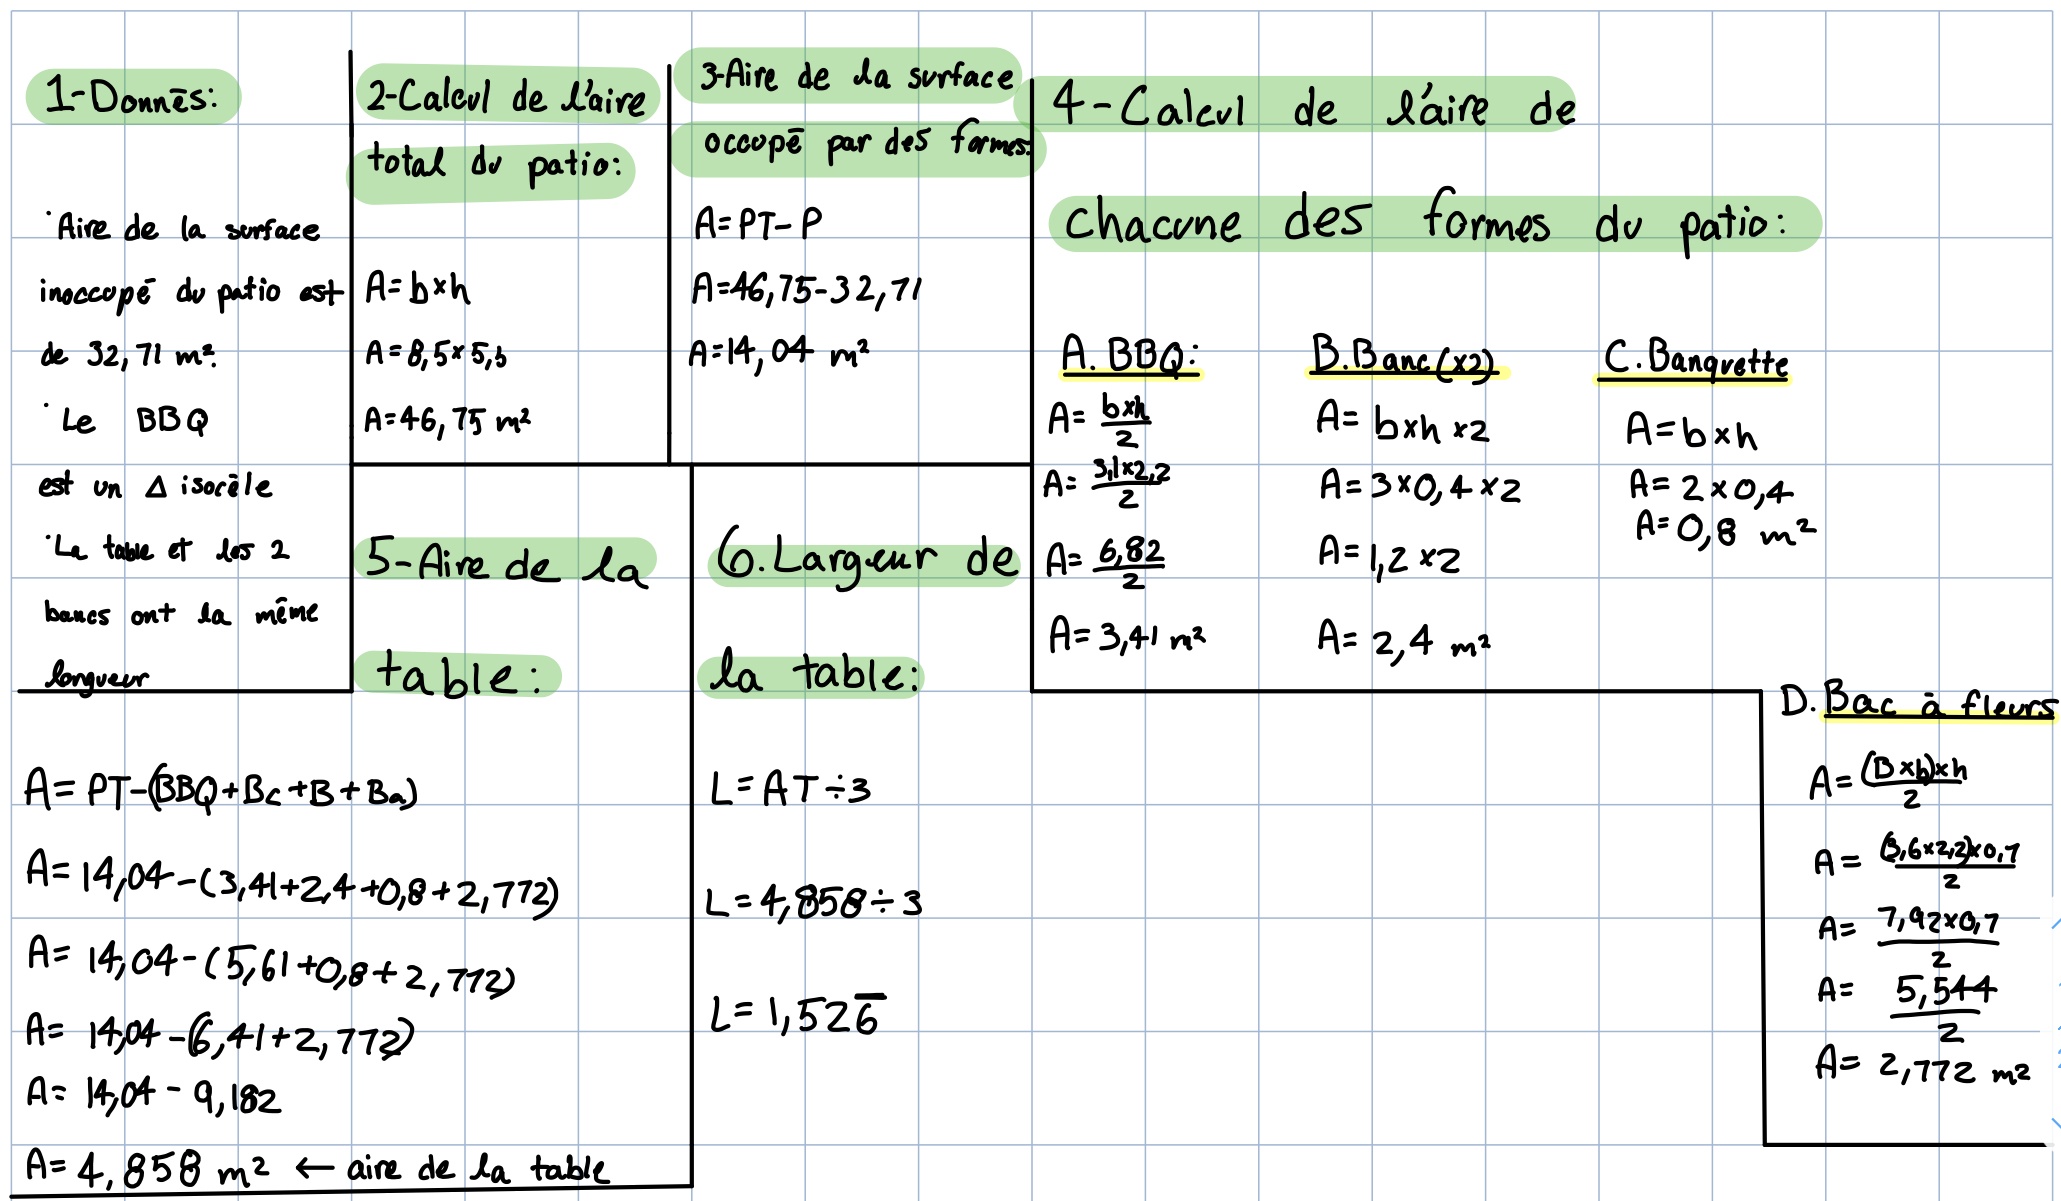 1-Donnēs:
·Aire de la surface
inoccupé du patio est
de 32,71 m².
·Le BBQ
est un Δ isocèle
·La table et les 2
bancs ont la même
longueur
2-Calcul de l'aire
total du patio:
A=b×h
A=8,5×5,5
A=46,75 m²
3-Aire de la surface
occupé par des formes:
A=PT-P
A=46,75-32,71
A=14,04 m²
4-Calcul de l'aire de
Chacune des formes du patio:
A.BBQ:
A= b×h/2
A= 3,1×2,2/2
A= 6,82/2
A= 3,41 m²
B.Banc(×2)
A= b×h ×2
A= 3×0,4×2
A= 1,2×2
A= 2,4 m²
C.Banquette
A=b×h
A= 2×0,4
A= 0,8 m²
D.Bac à fleurs
A= (B×b)×h/2
A= (3,6×2,2)×0,7/2
A= 7,92×0,7/2
A= 5,544/2
A= 2,772 m²
5-Aire de la
table:
A= PT-(BBQ+Bc+B+Ba)
A= 14,04-(3,41+2,4+0,8+2,772)
A= 14,04-(5,61+0,8+2,772)
A= 14,04-(6,41+2,772)
A= 14,04-9,182
A= 4,858 m² ← aire de la table
6.Largeur de
la table:
L=AT÷3
L=4,858÷3
L= 1,526̅